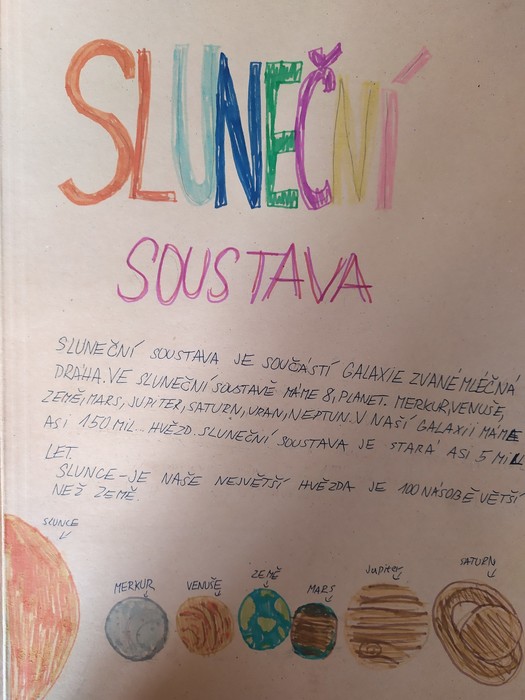 SLUNEČNÍ
SOUSTAVA
SLUNEČNÍ SOUSTAVA JE SOUČÁSTÍ GALAXIE ZVANÉ MLÉČNÁ
DRÁHA. VE SLUNEČNÍ SOUSTAVĚ MÁME 8, PLANET. MERKUR, VENUŠE,
ZEMĚ, MARS, JUPITER, SATURN, URAN, NEPTUN. V NAŠÍ GALAXII MÁME
ASI 150 MIL... HVĚZD. SLUNEČNÍ SOUSTAVA JE STARÁ ASI 5 MILL
LET.
SLUNCE - JE NAŠE NEJVĚTŠÍ HVĚZDA JE 100 NÁSOBĚ VĚTŠÍ
NEŽ ZEMĚ.
SLUNCE
MERKUR
VENUŠE
ZEMĚ
MARS
Jupiter
SATURN